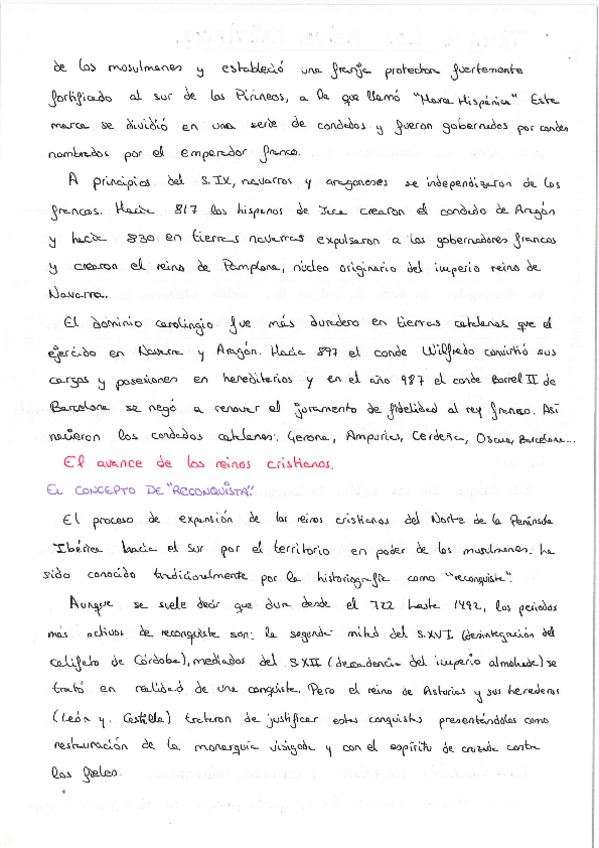 de los musulmanes y estableció una franja protectora fuertemente
fortificada al sur de los Pirineos, a la que llamó "Marca Hispánica". Esta
marca se dividió en una serie de condados y fueron gobernados por condes
nombrados por el emperador franco.
A principios del S.IX, navarros y aragoneses se independizaron de los
francos. Hacia 817 los hispanos de Jaca crearon el condado de Aragón
y hacia 830 en tierras navarras expulsaron a los gobernadores francos
y crearon el reino de Pamplona, núcleo originario del imperio reino de
Navarra.
El dominio carolingio fue más duradero en tierras catalanas que el
ejercido en Navarra y Aragón. Hacia 897 el conde Wilfredo convirtió sus
cargos y posesiones en hereditarios y en el año 987 el conde Borrel II de
Barcelona se negó a renovar el juramento de fidelidad al rey franco. Así
nacieron los condados catalanes: Gerona, Ampurias, Cerdeña, Osona, Barcelona...
El avance de los reinos cristianos.
EL CONCEPTO DE "RECONQUISTA"
El proceso de expansión de los reinos cristianos del Norte de la Península
Ibérica hacia el Sur por el territorio en poder de los musulmanes. ha
sido conocido tradicionalmente por la historiografía como "reconquista".
Aunque se suele decir que dura desde el 722 hasta 1492, los periodos
más activos de reconquista son: la segunda mitad del S.XVI (desintegración del
califato de Córdoba), mediados del S.XII (decadencia del imperio almohade) se
trató en realidad de una conquista. Pero el reino de Asturias y sus herederos
(León y Castilla) trataron de justificar estas conquistas presentándolas como
restauración de la monarquía visigoda y con el espíritu de cruzada contra
los fieles.